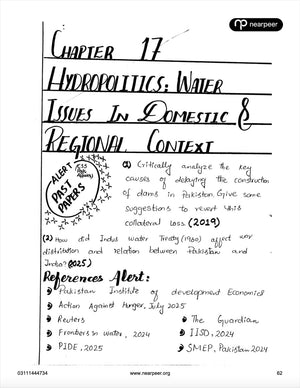 nearpeer
CHAPTER 17
HYDROPOLITICS: WATER
ISSUES IN DOMESTIC &
REGIONAL CONTEXT
ALERT
CSS
Past
Papers
PAST
PAPERS
(1) Critically analyze the key
causes of delaying the construction
of dams in Pakistan. Give some
suggestions to revert this
collateral loss. (2019)
(2) How did Indus Water Treaty (1960) affect
distribution and relation between Pakistan and
India? (2025)
References Alert:
Pakistan Institute of development Economics
Action Against Hunger, July 2025
Reuters
The Guardian
Frontiers in Water, 2024
IISD, 2024
PIDE, 2025
SMEP, Pakistan 2024
03111444734
www.nearpeer.org
62